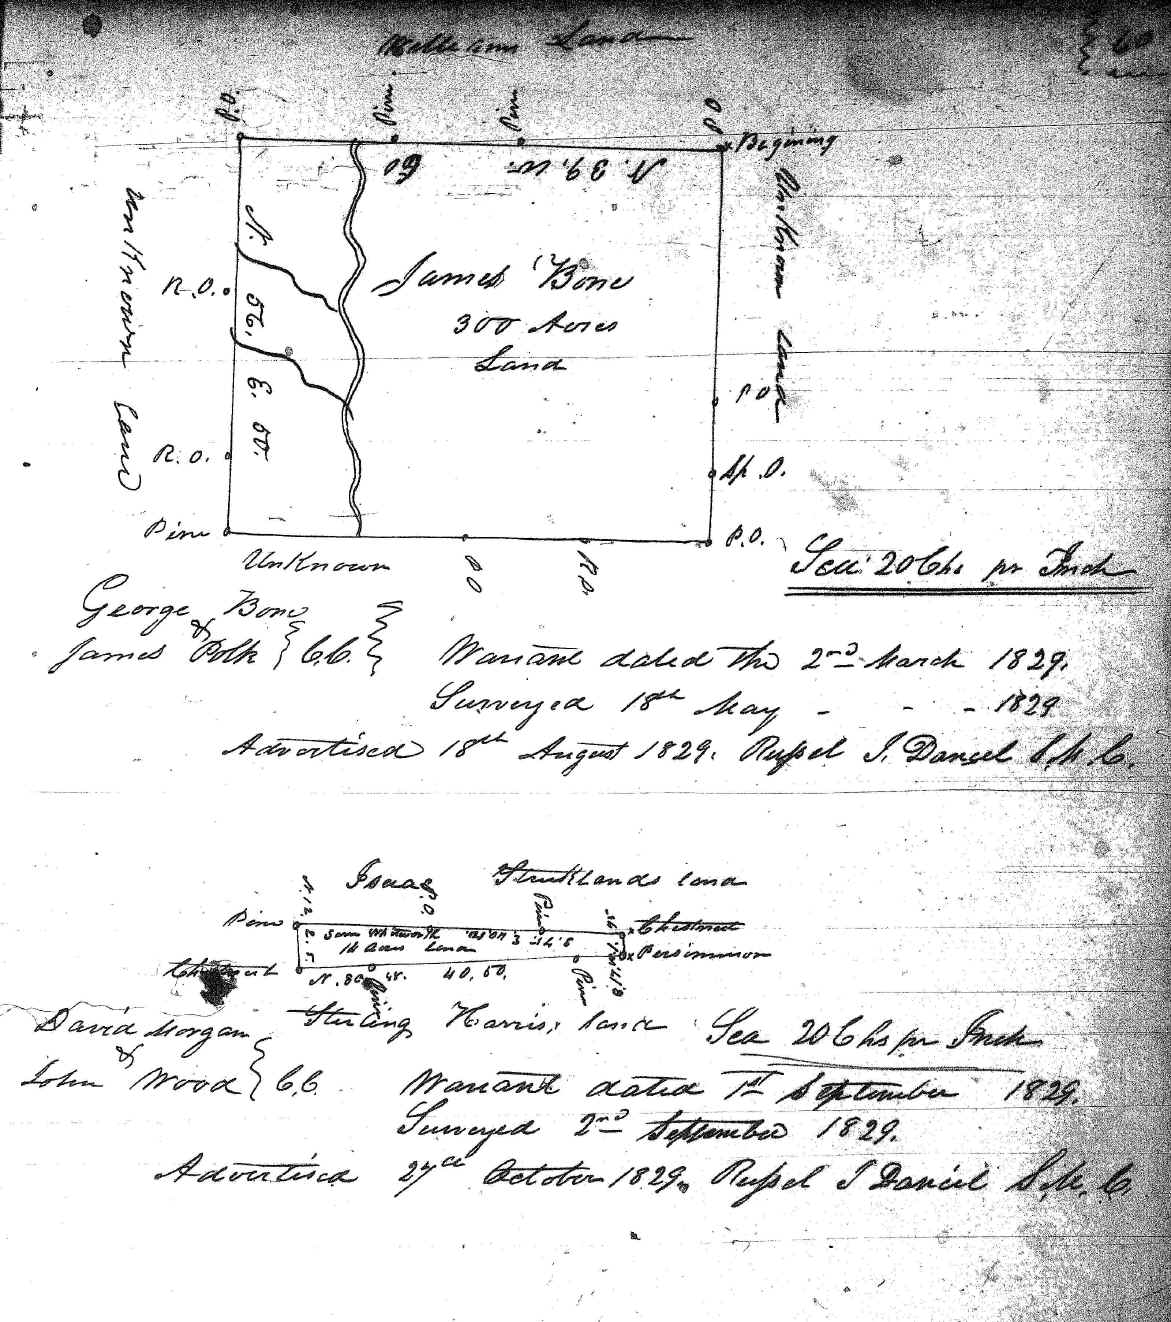 Land
60
P.O.
Pine
Pine
P O
Begining
N. 39. W.
60
UnKnown Land
UnKnown Land
N. 56. E. 50.
R.O.
James Bone
300 Acres
Land
P O
R.O.
Sp. O.
Pine
P.O.
UnKnown
P O
R O.
Sca. 20 Chs pr Inch
George Bone
&
James Polk } C.C.
Warrant dated the 2nd March 1829.
Surveyed 18th May - - - 1829
Advertised 18th August 1829. Russel J. Daniel S.M.C.
Isaac Stricklands land
N. 12.
P.O.
Pine
Pine
Chestnut
2. 5.
Sam Whitworth
14 Acres Land
Persimmon
Chestnut
N. 80 W. 40, 50.
Pine
Pine
Sterling Harris, land
Sca 20 Chs pr Inch
David Morgan
&
John Wood } C.C.
Warrant dated 1st September 1829.
Surveyed 2nd September 1829.
Advertised 27th October 1829. Russel J Daniel S.M.C.